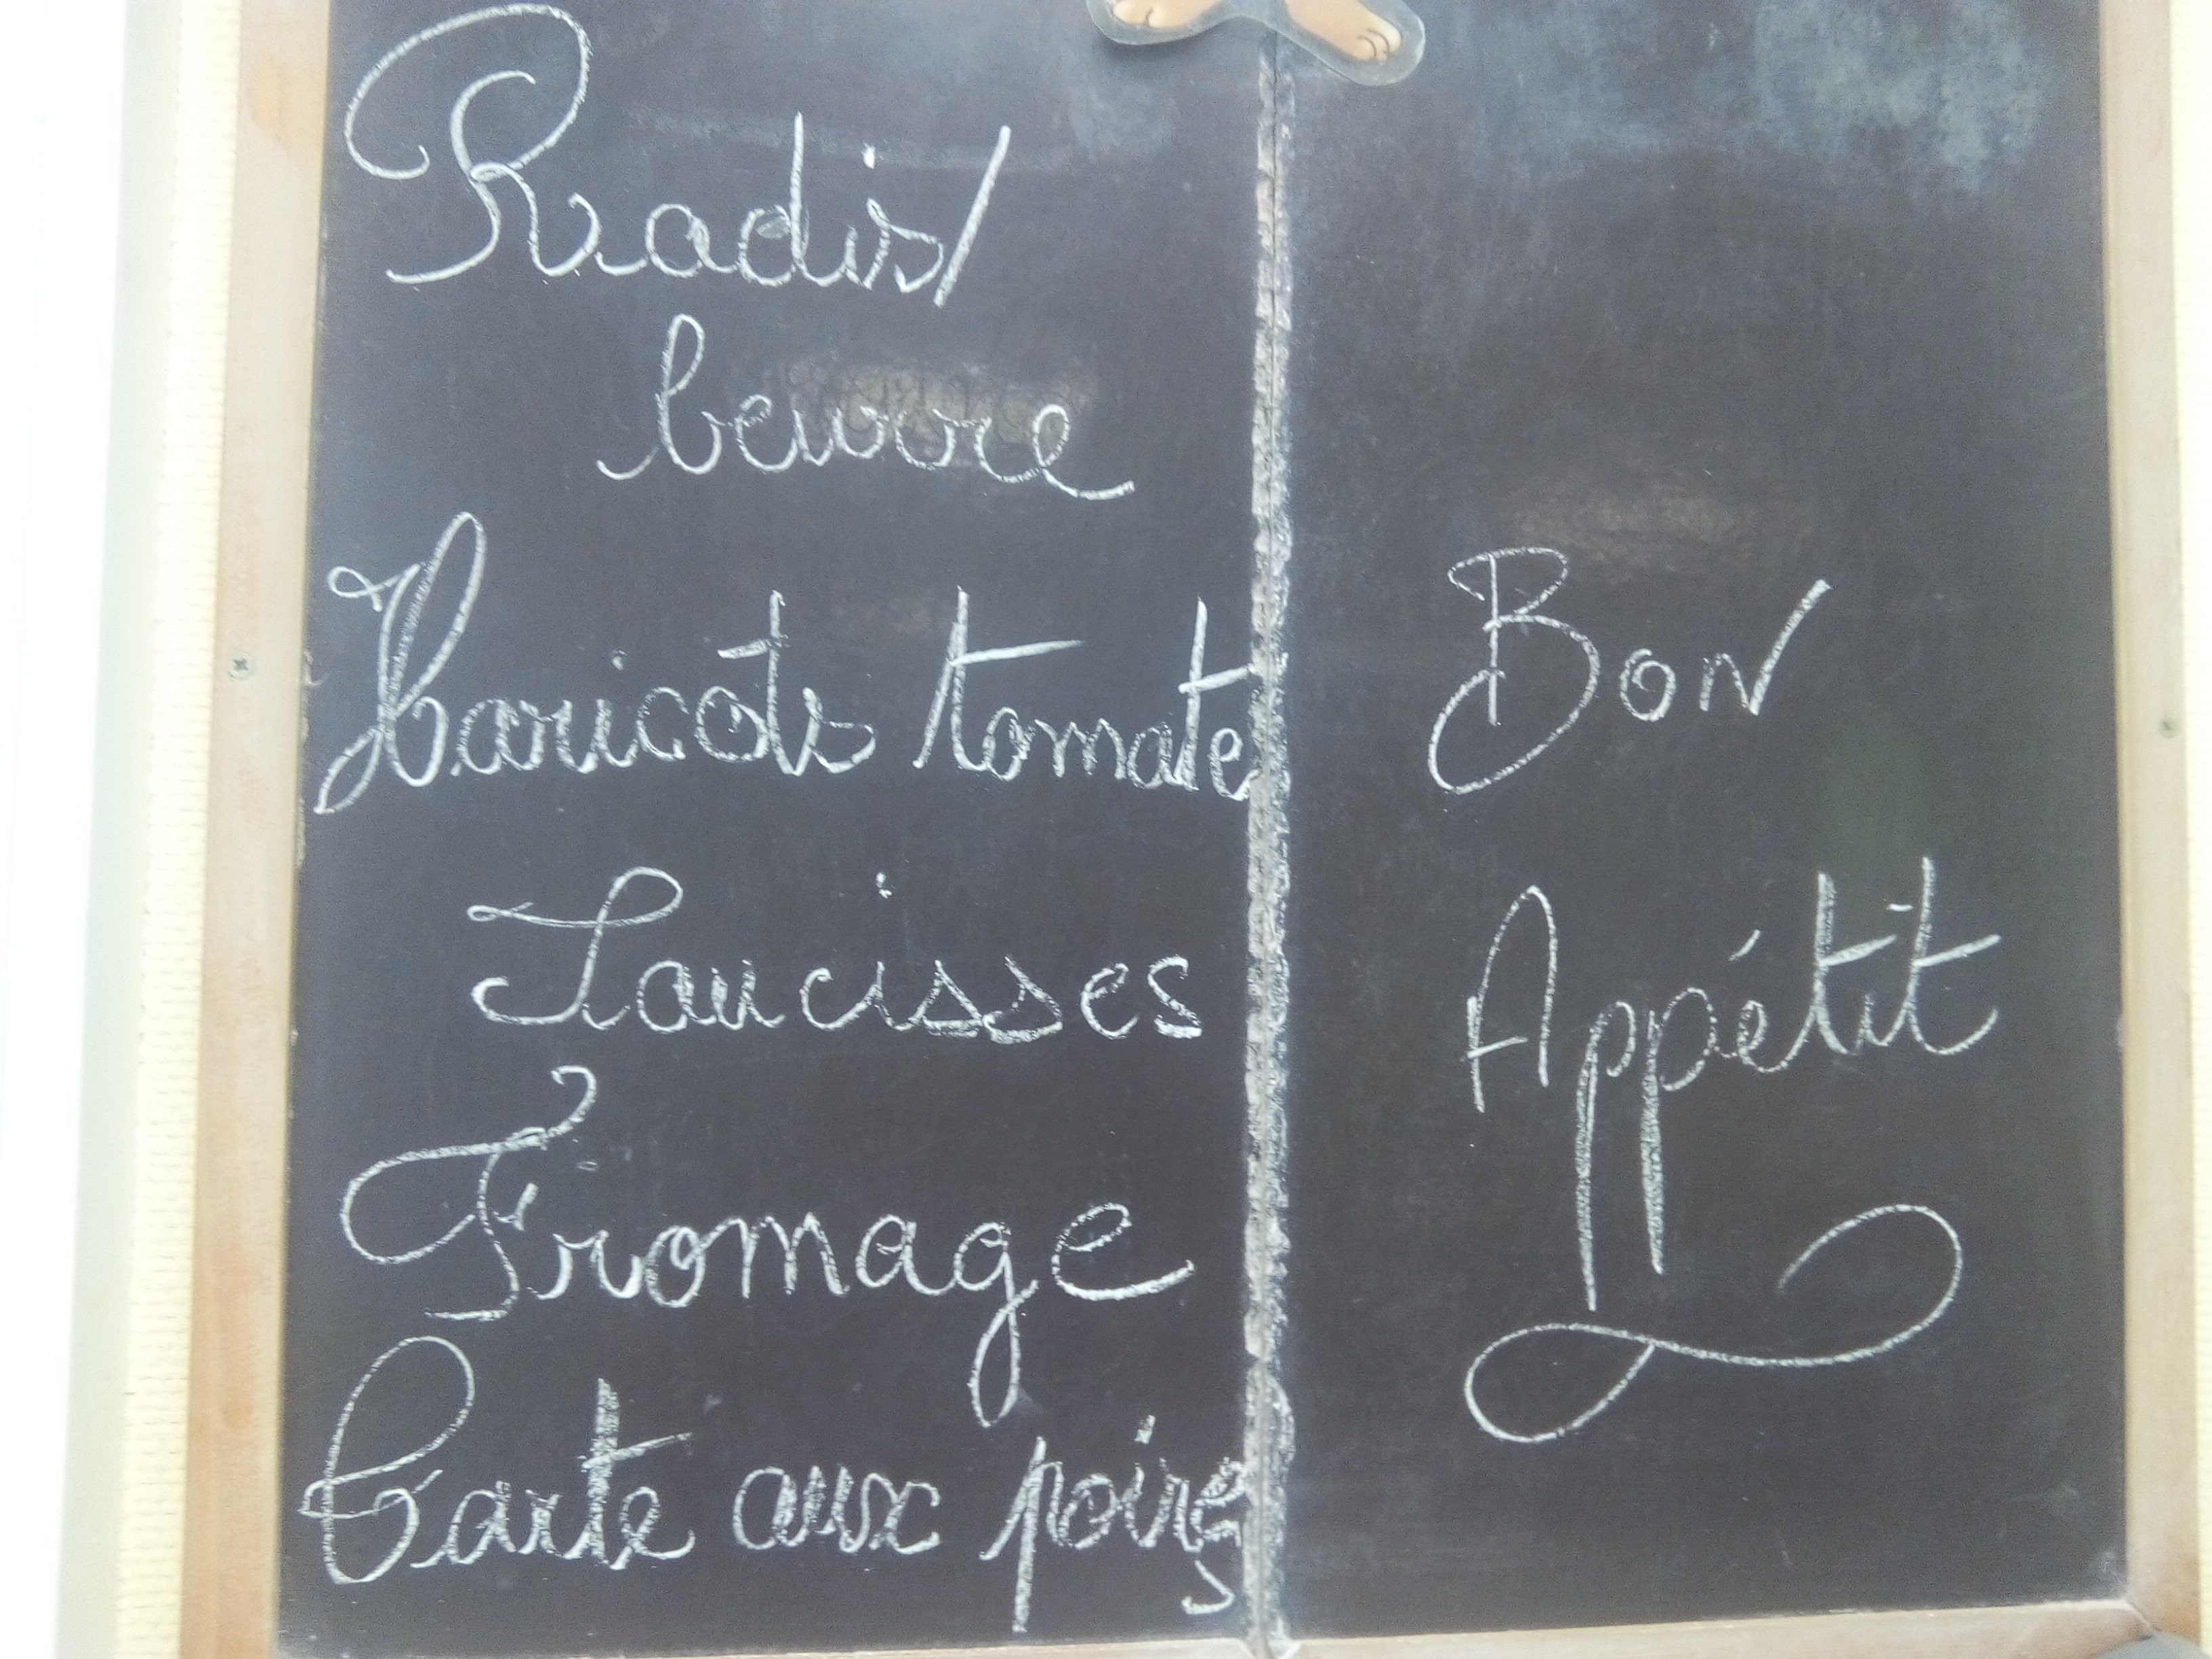 Radis/
beurre
Haricots tomate
Saucisses
Fromage
Tarte aux poires
Bon
Appétit